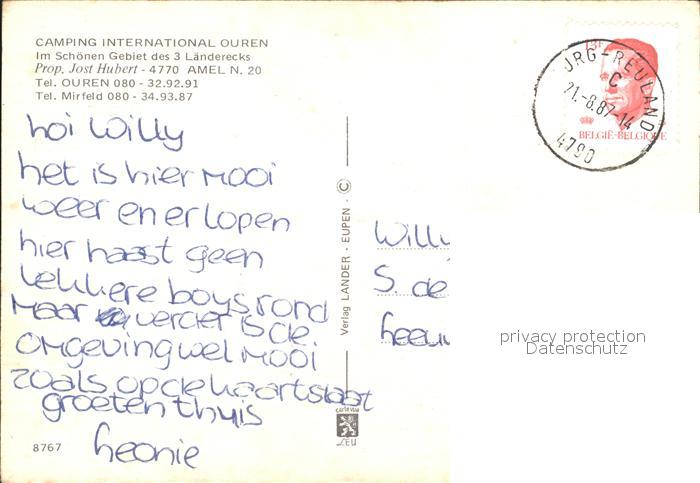 CAMPING INTERNATIONAL OUREN
Im Schönen Gebiet des 3 Länderecks
Prop. Jost Hubert - 4770 AMEL N. 20
Tel. OUREN 080 - 32.92.91
Tel. Mirfeld 080 - 34.93.87
hoi Willy
het is hier mooi
weer en er lopen
hier haast geen
lekkere boys rond
maar verder is de
omgeving wel mooi
zoals op de kaart staat
groeten thuis
Leonie
8767
Verlag LANDER - EUPEN - ©
carte vue
LEU
13F
BELGIË-BELGIQUE
URG-REULAND
C
21.-8.87-14
4790
Willy
S. de
Leeuw
privacy protection
Datenschutz